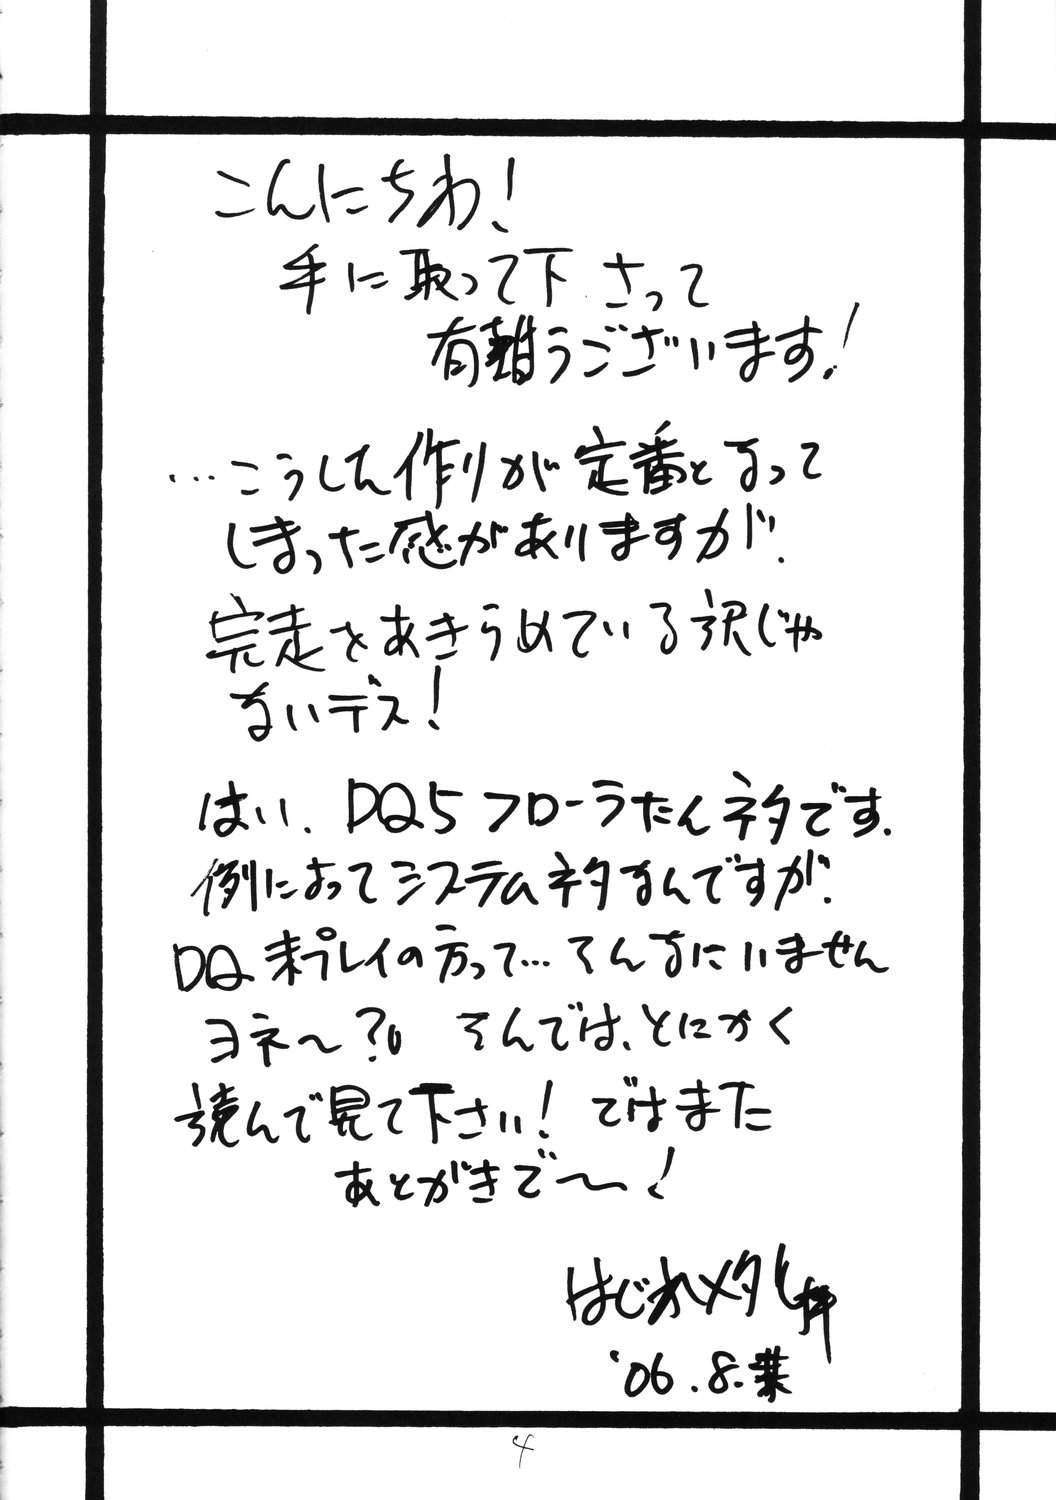 こんにちわ!
手に取って下さって
有難うございます!
…こうした作りが定番となって
しまった感がありますが.
完走をあきらめている訳じゃ
ないデス!
はい. DQ5フローラたんネタです.
例によってシステムネタなんですが.
DQ未プレイの方って…そんなにいません
ヨネ〜?。 そんでは、とにかく
読んで見て下さい! ではまた
あとがきで〜!
はじめメタル
'06.8.
4